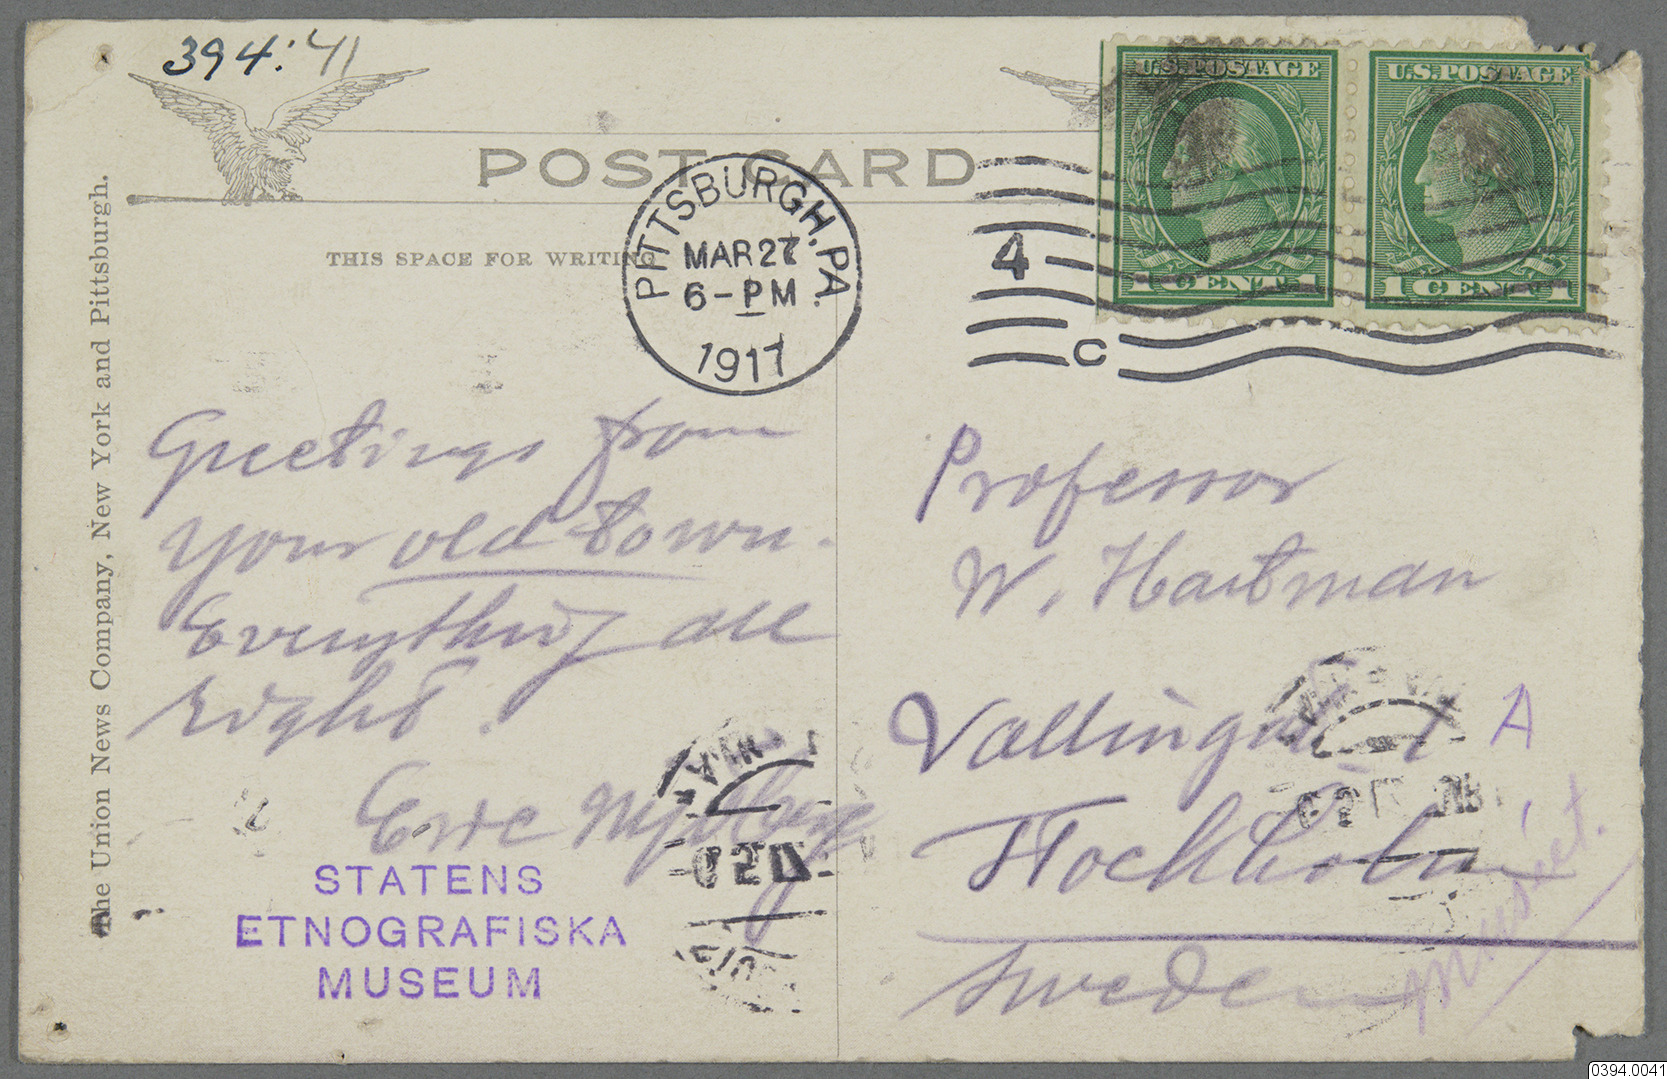 394:41
POST CARD
THIS SPACE FOR WRITING
U.S. POSTAGE
1 CENT 1
U.S. POSTAGE
1 CENT 1
PITTSBURGH, PA.
MAR 27
6-PM
1917
4
C
The Union News Company, New York and Pittsburgh.
Greetings from
your old town.
Everything all
right.
Eric
STATENS
ETNOGRAFISKA
MUSEUM
Professor
W. Hartman
A
Stockholm
Sweden
Museet.
0394.0041